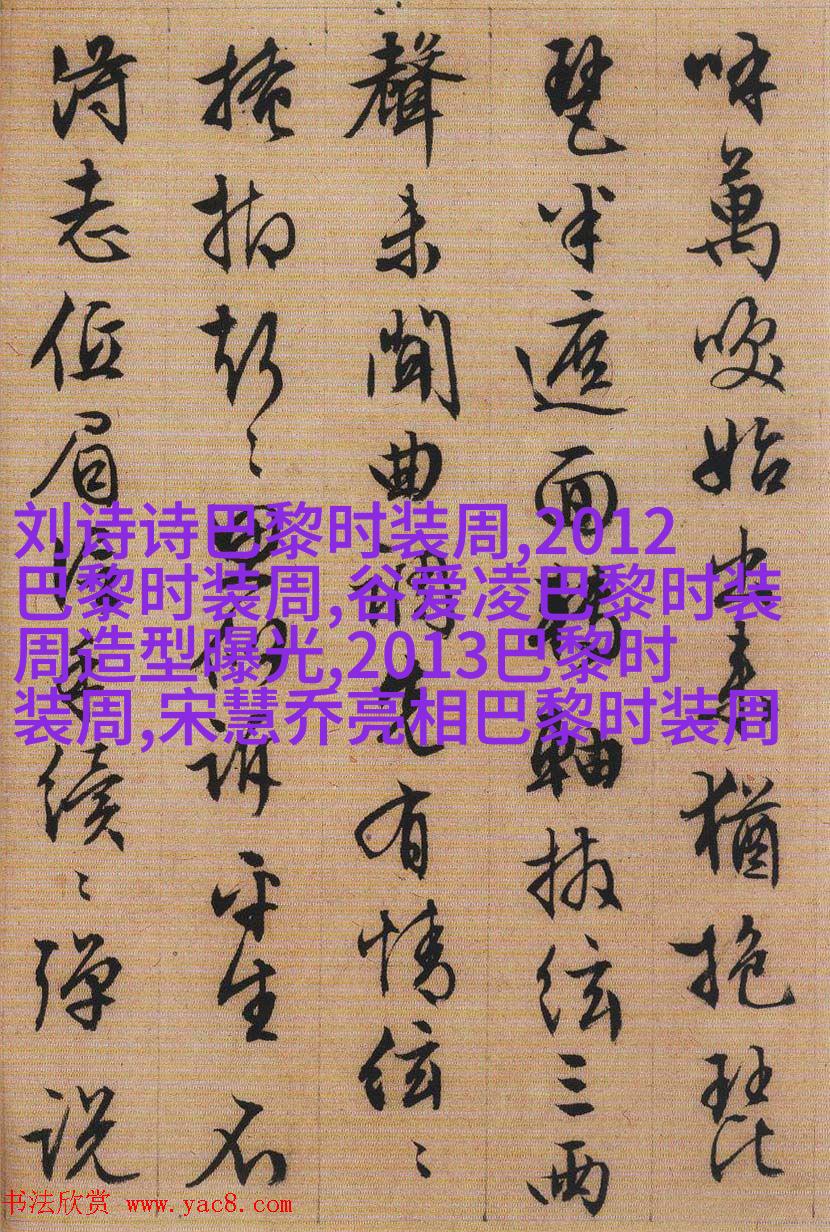 呼萬喚始出来猶抱琵
琶半遮面轉軸撥絃三兩
聲未聞曲調先有情絃〻
掩抑聲〻思似訴平生不
得志低眉信手續〻彈說
刘诗诗巴黎时装周,2012
巴黎时装周,谷爱凌巴黎时装
周造型曝光,2013巴黎时
装周,宋慧乔亮相巴黎时装周
书法欣赏 www.yac8.com